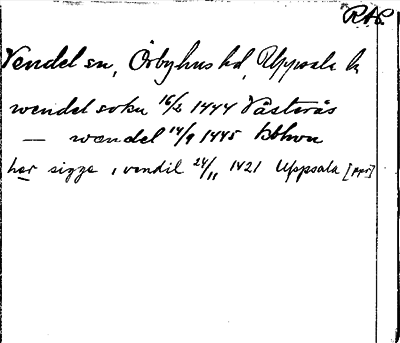 RAP
Vendel sn, Örbyhus hd, Uppsala l.
wendel sokn 16/2 1444 Västerås
— wendel 14/9 1445 Sthm
her sigge i vendil 24/11 1421 Uppsala [ppr]